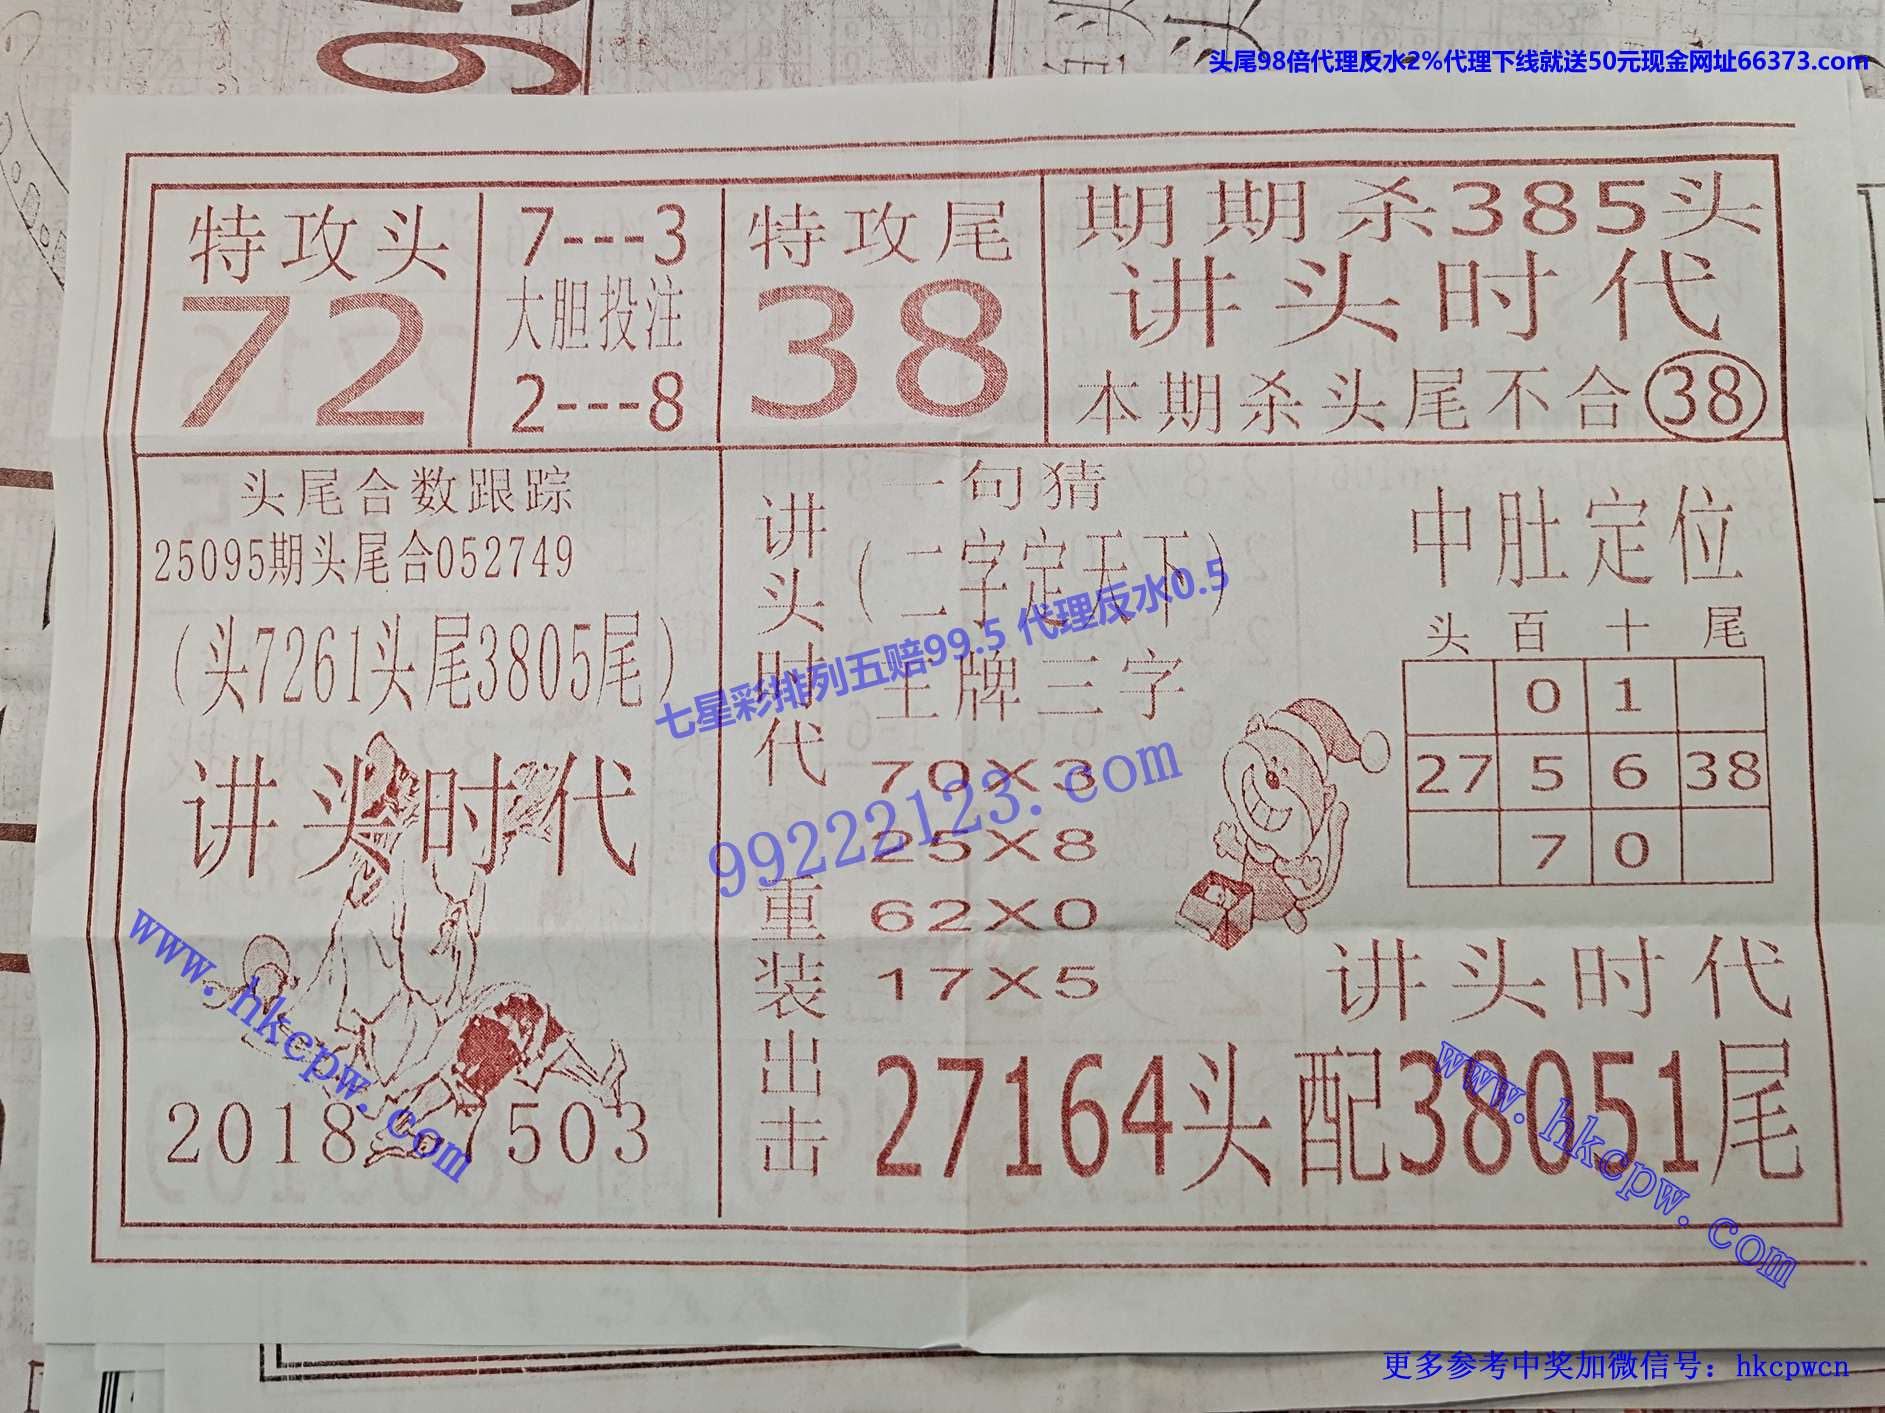 头尾98倍代理反水2%代理下线就送50元现金网址66373.com
特攻头
72
7---3
大胆投注
2---8
特攻尾
38
期期杀385头
讲头时代
本期杀头尾不合38
头尾合数跟踪
25095期头尾合052749
(头7261头尾3805尾)
讲头时代
2018
503
讲头时代
重装出击
一句猜
(二字定天下)
王牌三字
70X3
25X8
62X0
17X5
七星彩排列五赔99.5 代理反水0.5
99222123.com
中肚定位
头 百 十 尾
0 1
27 5 6 38
7 0
讲头时代
27164头配38051尾
www.hkcpw.com
www.hkcpw.com
更多参考中奖加微信号：hkcpwcn